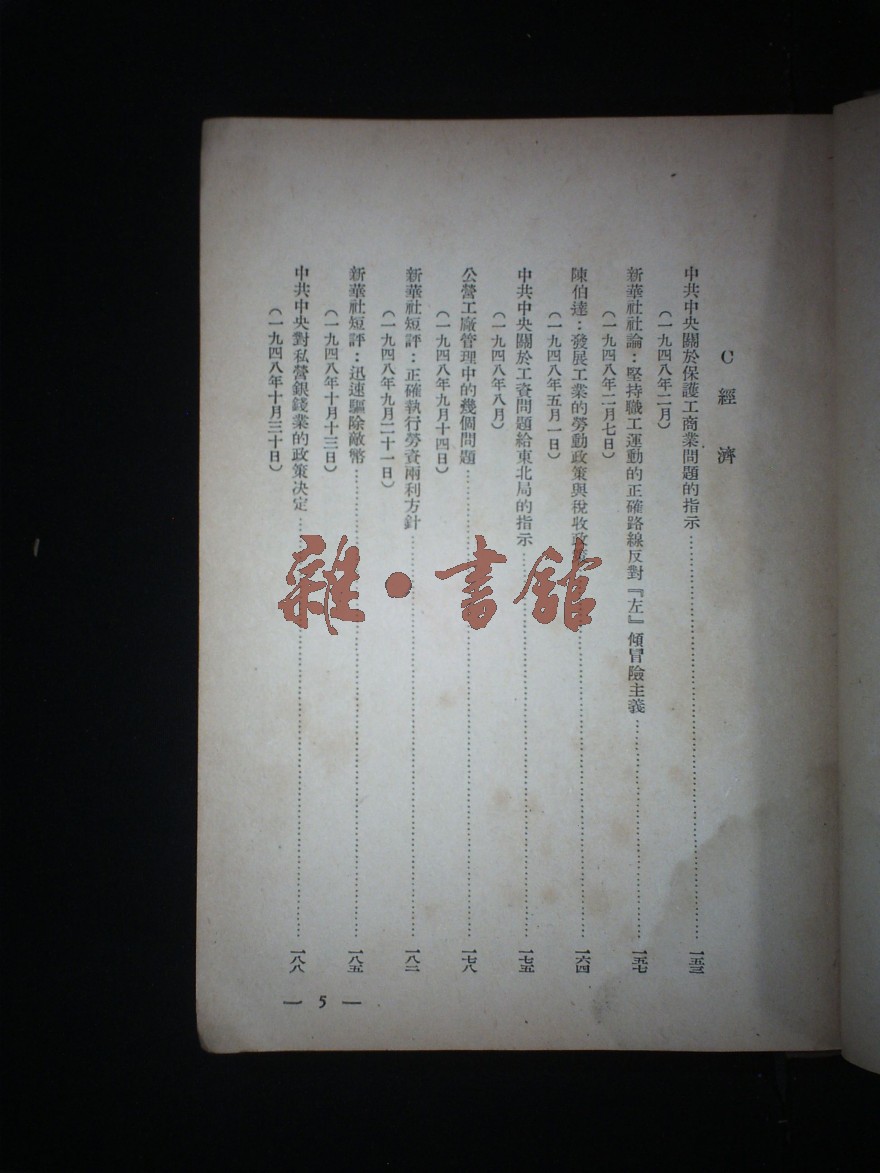 C 經濟
中共中央關於保護工商業問題的指示……一五三
（一九四八年二月）
新華社社論：堅持職工運動的正確路線反對『左』傾冒險主義……一五七
（一九四八年二月七日）
陳伯達：發展工業的勞動政策與稅收政……一六四
（一九四八年五月一日）
中共中央關於工資問題給東北局的指示……一七五
（一九四八年八月）
公營工廠管理中的幾個問題……一七八
（一九四八年九月十四日）
新華社短評：正確執行勞資兩利方針……一八二
（一九四八年九月二十一日）
新華社短評：迅速驅除敵幣……一八五
（一九四八年十月十三日）
中共中央對私營銀錢業的政策決定……一八八
（一九四八年十月三十日）
— 5 —
雜·書館